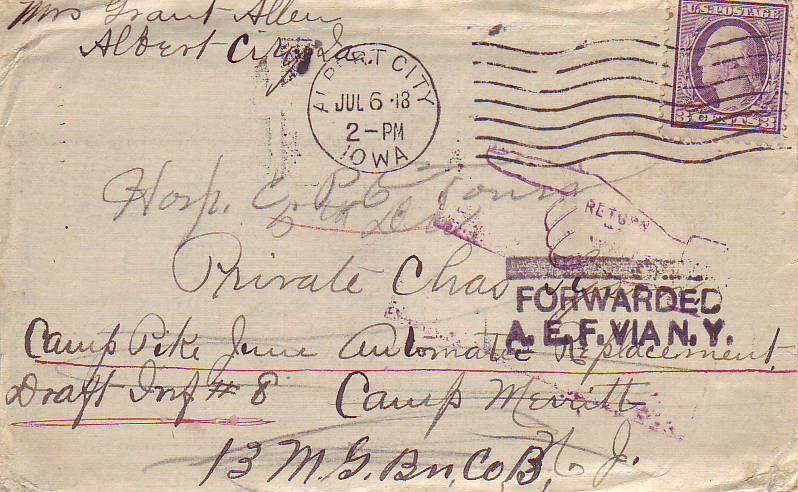 Mrs Grant Allen
Albert City Ia.
U.S. POSTAGE
3 CENTS 3
ALBERT CITY
JUL 6 18
2-PM
IOWA
Hosp.
RETURN
Private Chas
FORWARDED
A. E. F. VIA N. Y.
Camp Pike June Automatic Replacement
Draft Inf # 8 Camp Merritt
13 M. G. Bn, Co, B, N. J.